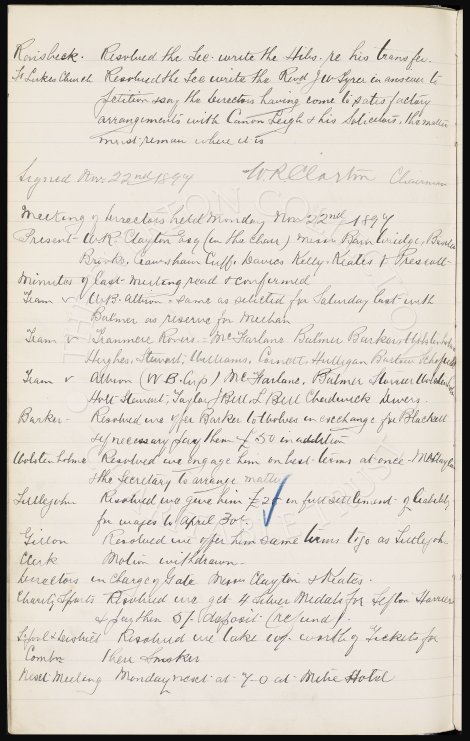 Resolved the Sec. write the Hibs. re his transfer.
St Lukes Church Resolved the Sec write the Revd J W Tyrer in answer to
petition & say the Directors having come to satisfactory
arrangements with Canon Leigh & his Solicitors, the matter
must remain where it is
Signed Nov. 22nd 1897 W R Clayton Chairman
Meeting of Directors held Monday Nov 22nd 1897
Present W. R. Clayton Esq (in the chair) Messrs Bainbridge,
Brooks, Crawshaw Cuff, Davies Kelly, Keates &
Minutes of last meeting read & confirmed
Team v W. B. Albion - same as selected for Saturday last with
Balmer as reserve for Meehan
Team v Tranmere Rovers - McFarlane Balmer Barker Wolstenholme
Hughes, Stewart, Williams, Hulligan Barlow
Team v Albion (W B. Cup) McFarlane, Balmer Storrier Wolstenholme
Holt Stewart, Taylor J Bell L Bell Chadwick Divers.
Barker - Resolved we offer Barker to Wolves in exchange for Blackett
& if necessary pay them £50 in addition
Wolstenholme Resolved we engage him on best terms at once - Mr Clayton
& the Secretary to arrange matter
Littlejohn Resolved we give him £20 in full settlement of liability
for wages to April 30th.
Resolved we offer him same terms to go as Littlejohn
Clerk Motion withdrawn.
Directors in charge of Gate Messrs Clayton & Keates.
Charity Sports Resolved we get 4 Silver Medals for Sefton Harriers
& further 5/- deposit (refund).
L'pool & District Resolved we take worth of Tickets for
Combn their Smoker
Next Meeting Monday next at 7-0 at Mitre Hotel